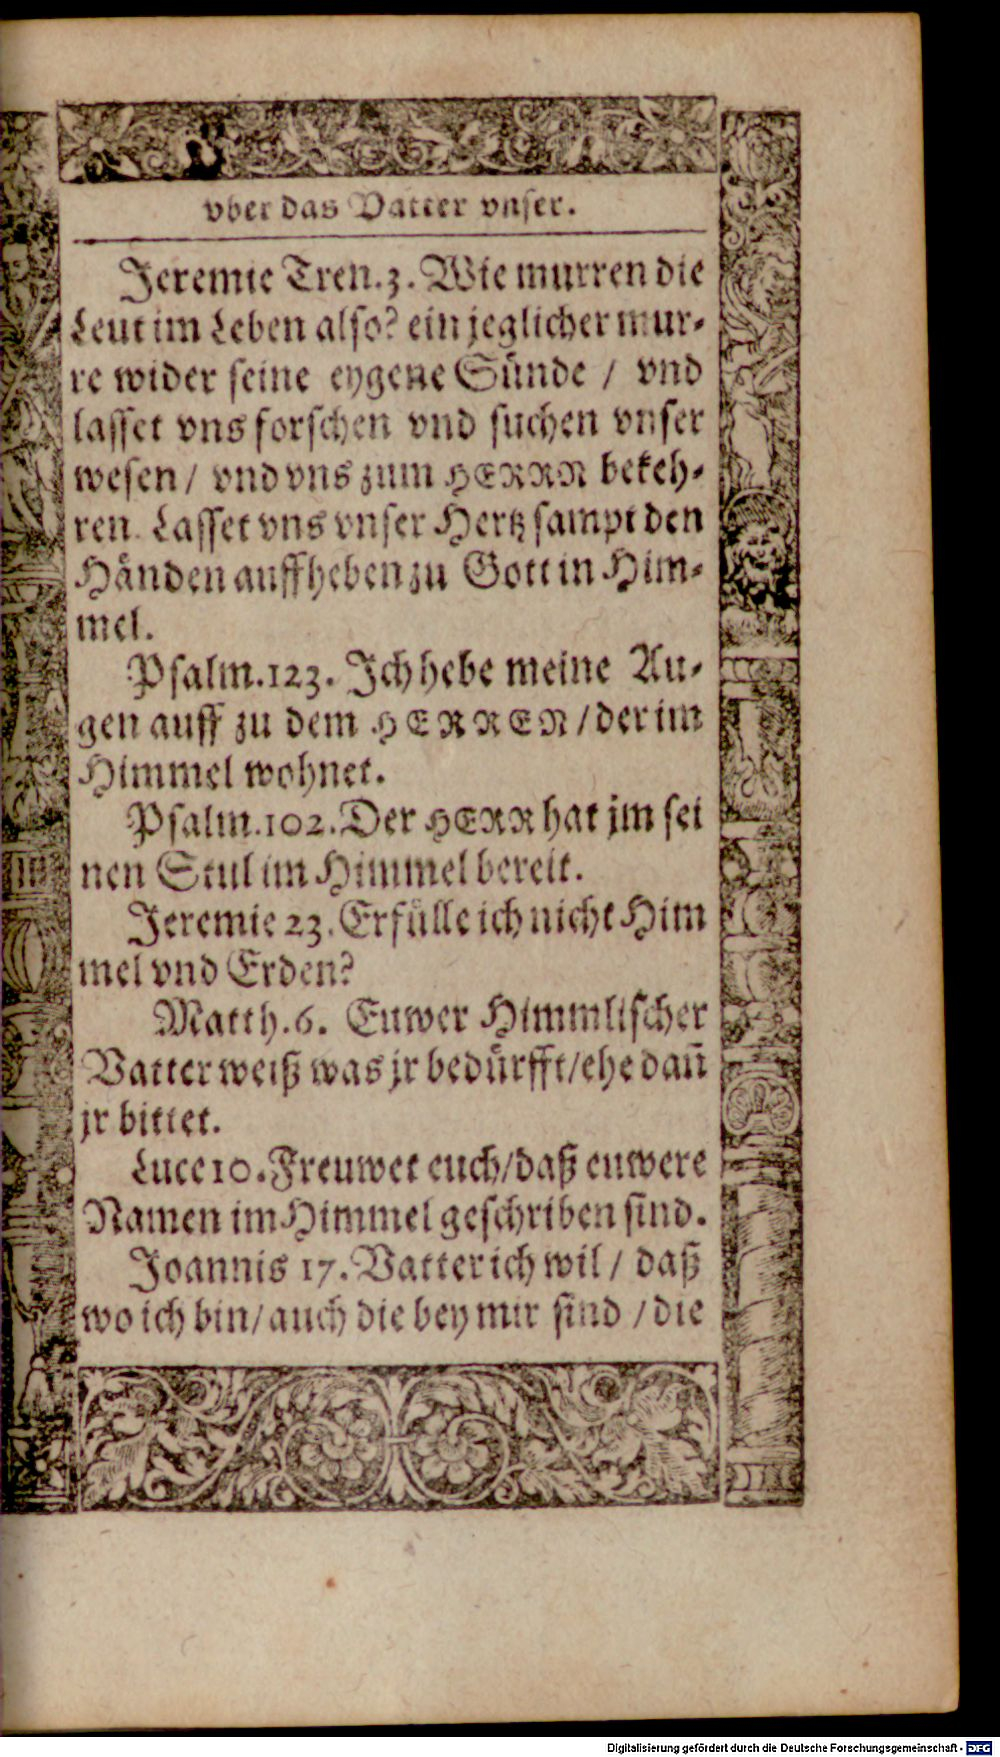 vber das Vatter vnser.
Jeremie Tren.3. Wie murren die
Leut im Leben also? ein jeglicher mur-
re wider seine eygene Sünde / vnd
lasset vns forschen vnd suchen vnser
wesen / vnd vns zum HERRN bekeh-
ren. Lasset vns vnser Hertz sampt den
Händen auffheben zu Gott in Him-
mel.
Psalm.123. Ich hebe meine Au-
gen auff zu dem HERREN / der im
Himmel wohnet.
Psalm.102. Der HERR hat jm sei
nen Stul im Himmel bereit.
Jeremie 23. Erfülle ich nicht Him
mel vnd Erden?
Matth.6. Euwer Himmlischer
Vatter weiß was jr bedürfft/ehe dañ
jr bittet.
Luce 10. Freuwet euch/daß euwere
Namen im Himmel geschriben sind.
Joannis 17. Vatter ich wil / daß
wo ich bin/auch die bey mir sind / die
Digitalisierung gefördert durch die Deutsche Forschungsgemeinschaft - DFG